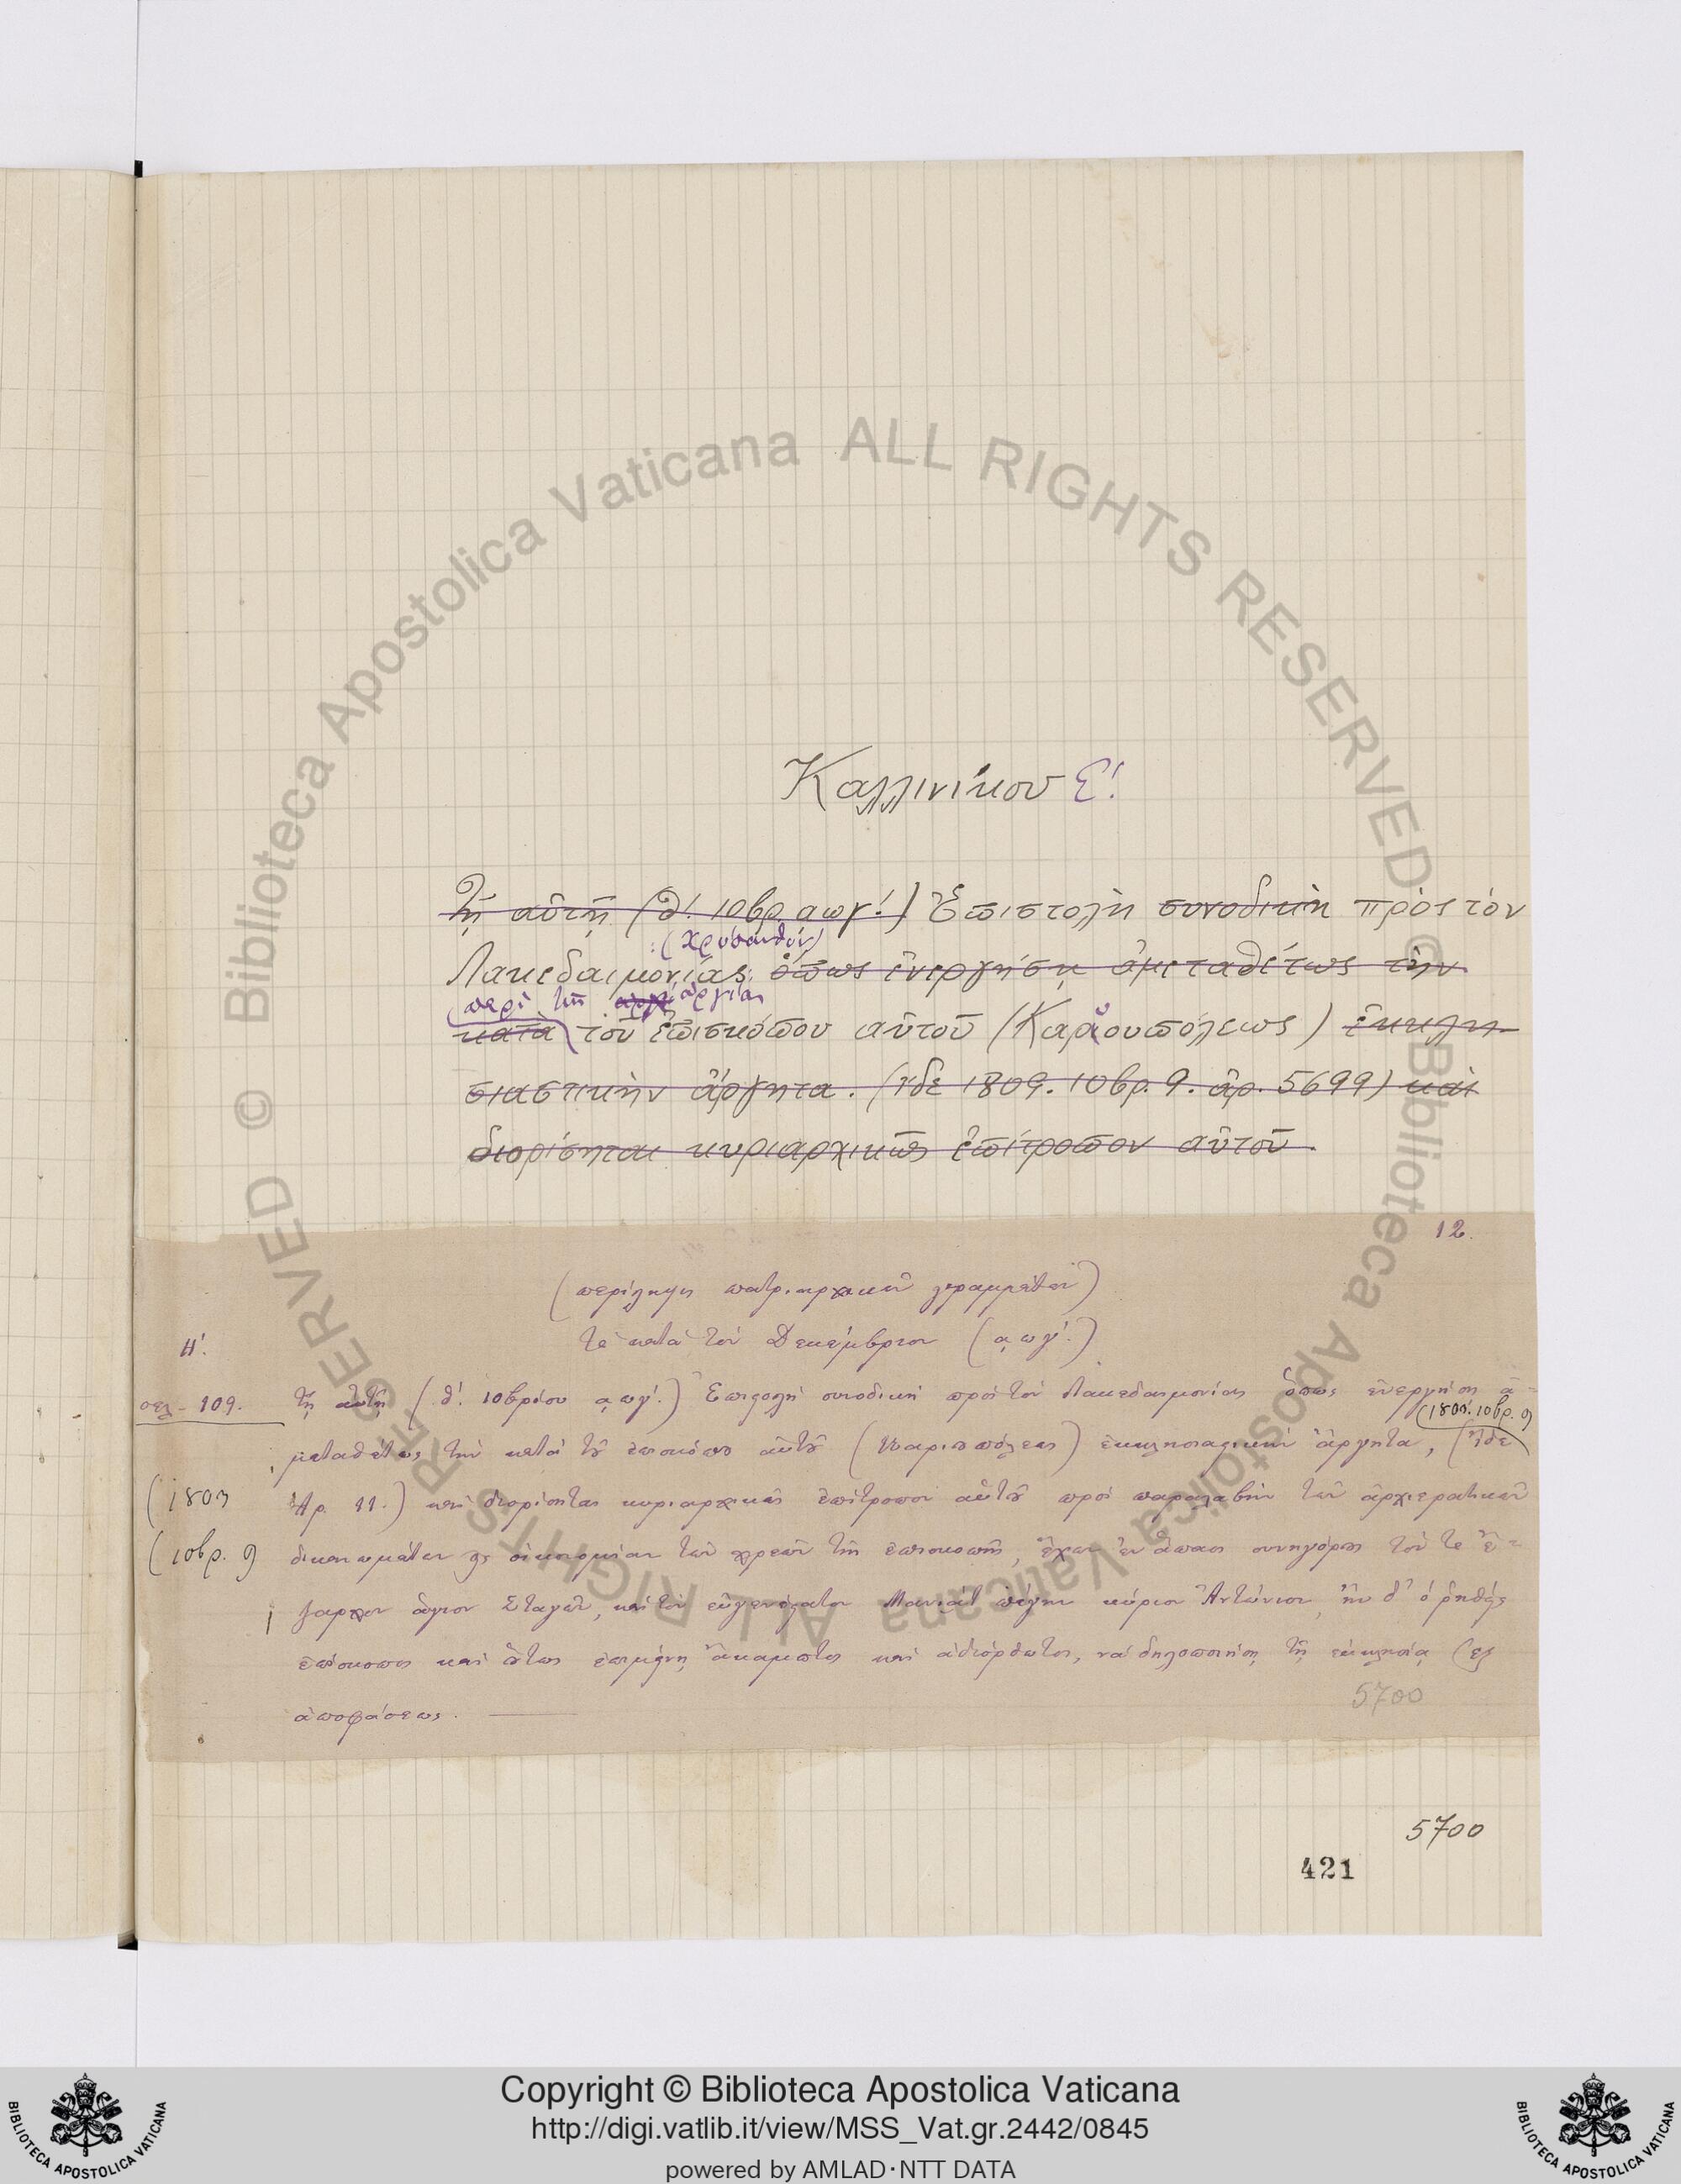 Καλλινίκου Ε΄.
Τῇ αὐτῇ (θ΄. 10βρ. αωγ΄.) Ἐπιστολὴ συνοδικὴ πρὸς τὸν
(Χρύσανθον)
Λακεδαιμονίας ὅπως ἐνεργήσῃ ἀμεταθέτως τὴν
(περὶ τῆς ἀργίας
κατὰ τοῦ ἐπισκόπου αὐτοῦ (Καρυουπόλεως) ἐκκλη-
σιαστικὴν ἄργητα. (ἴδε 1809. 10βρ. 9. ἀρ. 5699) καὶ
διορίσηται κυριαρχικῶς ἐπίτροπον αὐτοῦ.
12.
(περίληψις πατριαρχικῶν γραμμάτων)
τὰ κατὰ τὸν Δεκέμβριον (αωγ΄.)
Η΄.
σελ. 109. τῇ αὐτῇ (θ΄. 10βρίου αωγ΄.) Ἐπιστολὴ συνοδικὴ πρὸς τὸν Λακεδαιμονίας ὅπως ἐνεργήσῃ ἀ-
(1803. 10βρ. 9
μεταθέτως τὴν κατὰ τοῦ ἐπισκόπου αὐτοῦ (Καριουπόλεως) ἐκκλησιαστικὴν ἄργητα, (ἴδε
(1803 Ἀρ. 11.) καὶ διορίσηται κυριαρχικῶς ἐπίτροπον αὐτοῦ πρὸς παραλαβὴν τῶν ἀρχιερατικῶν
(10βρ. 9 δικαιωμάτων καὶ οἰκονομίαν τῶν χρεῶν τῆς ἐπισκοπῆς, ἔχων ἐν ἅπασι συνηγόρους τόν τε ἔ-
ξαρχον ἅγιον Σταγῶν, καὶ τὸν εὐγενέστατον Μανιάτ μπέην κύριον Ἀντώνιον, ἢν δ' ὁ ῥηθεὶς
ἐπίσκοπος καὶ οὕτως ἐπιμένῃ ἄκαμπτος καὶ ἀδιόρθωτος, νὰ δηλοποιήσῃ τῇ ἐκκλησίᾳ
5700
ἀποφάσεως.
5700
421
Copyright © Biblioteca Apostolica Vaticana
http://digi.vatlib.it/view/MSS_Vat.gr.2442/0845
powered by AMLAD·NTT DATA
BIBLIOTECA APOSTOLICA VATICANA
BIBLIOTECA APOSTOLICA VATICANA
© Biblioteca Apostolica Vaticana ALL RIGHTS RESERVED
© Biblioteca Apostolica Vaticana ALL RIGHTS RESERVED